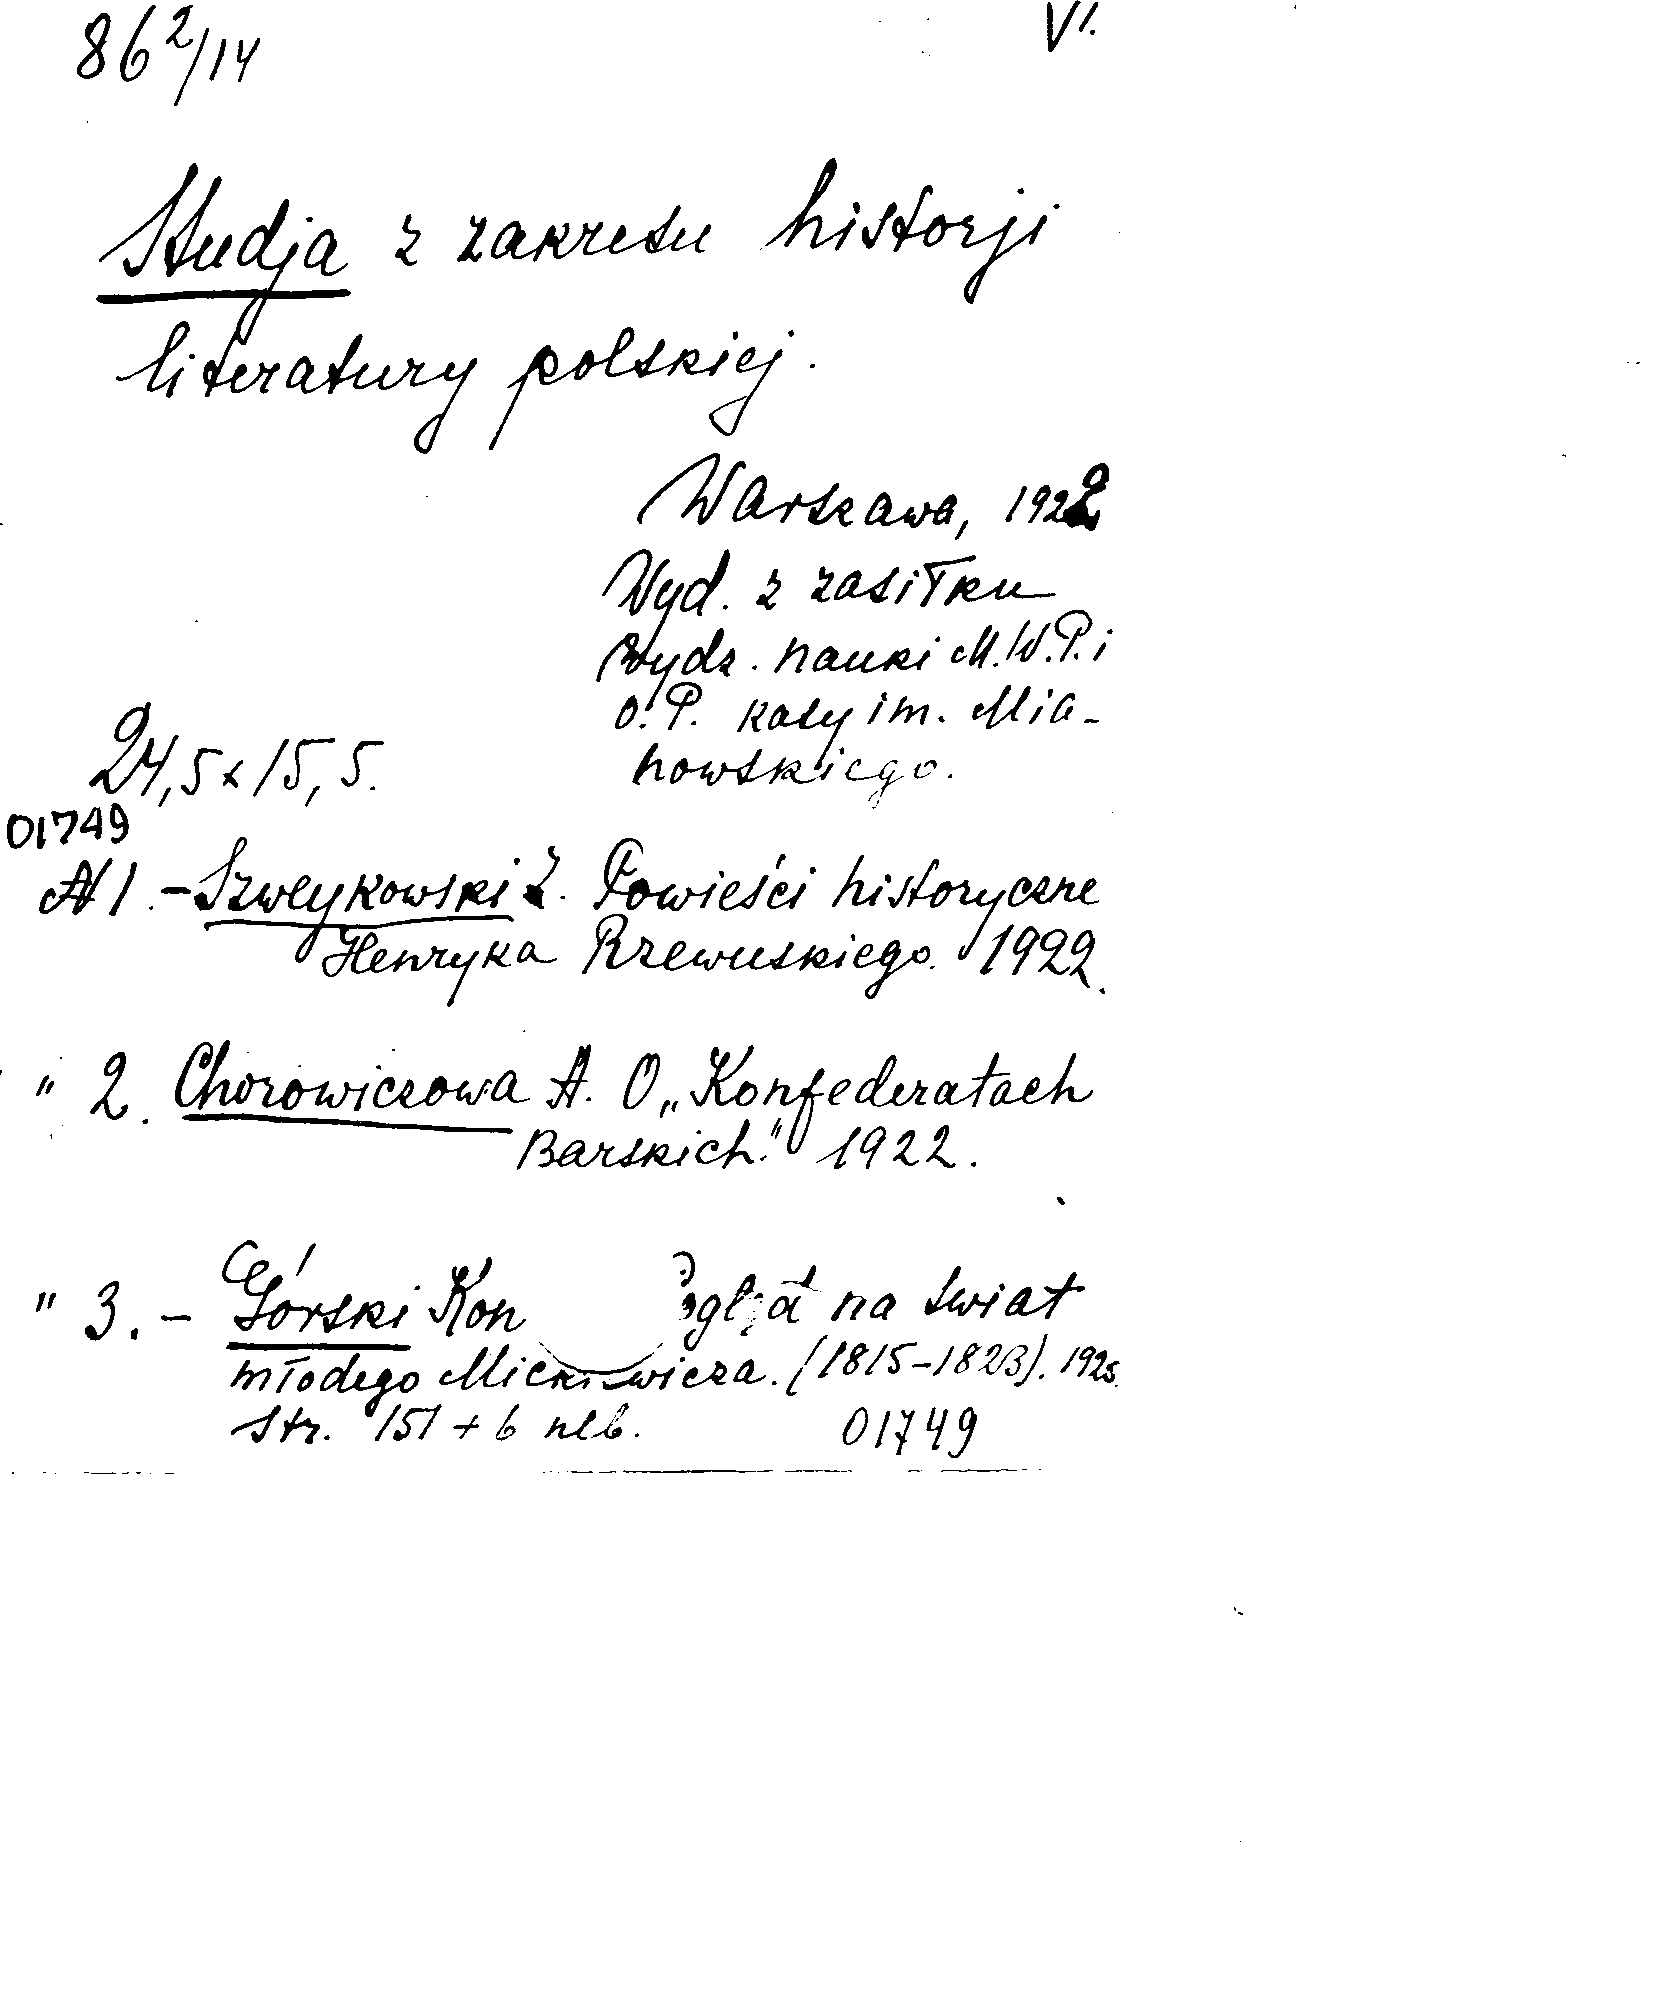 86 2/14
VI.
Studja z zakresu historji
literatury polskiej.
Warszawa, 1922
Wyd. z zasiłku
wydz. nauki M.W.P. i
O.P. kasy im. Mia-
nowskiego.
24,5 x 15,5.
01749
N 1. - Szweykowski Z. Powieści historyczne
Henryka Rzewuskiego. 1922.
" 2. Chorowiczowa A. O „Konfederatach
Barskich." 1922.
" 3. - Górski Kon na świat
młodego Mickiewicza. (1815-1823). 1925.
str. 151 + 6 nlb.
01749